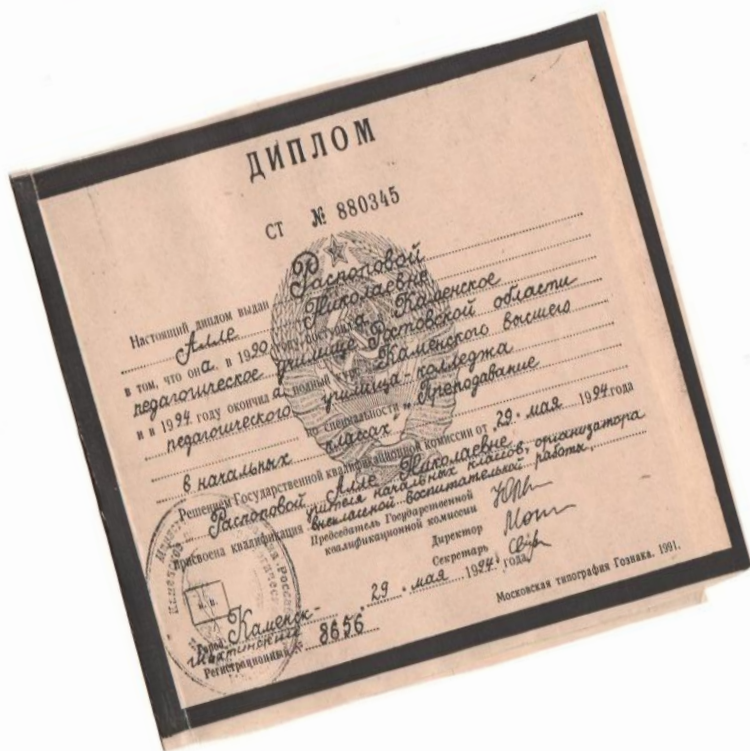 ДИПЛОМ
СТ № 880345
Настоящий диплом выдан Распоповой
Алле Николаевне
в том, что она в 1990 году поступила в Каменское
педагогическое училище Ростовской области
и в 1994 году окончила полный курс Каменского высшего
педагогического училища-колледжа
по специальности „Преподавание
в начальных классах
Решением Государственной квалификационной комиссии от 29 мая 1994 года
Распоповой Алле Николаевне
присвоена квалификация учителя начальных классов, организатора
внеклассной воспитательной работы,
Председатель Государственной
квалификационной комиссии
Директор
Секретарь
29 мая 1994 года
Город Каменск-
Шахтинский
Регистрационный № 8656
Московская типография Гознака. 1991.